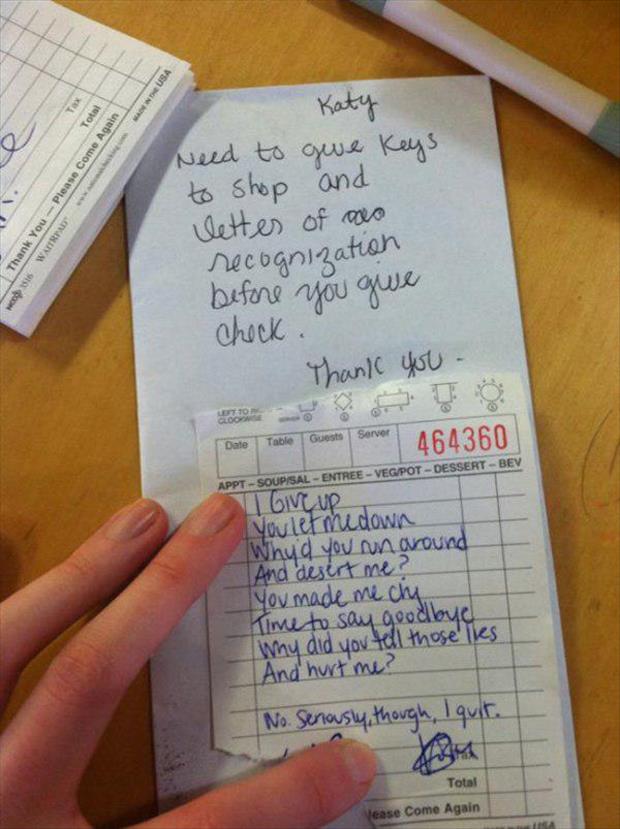 Tax
Total
Thank You — Please Come Again
MADE IN THE USA
3516 WAITRPAD
Katy
Need to give Keys
to shop and
letter of
recognization
before you give
check.
Thank you -
LEFT TO
CLOCKWISE
Date Table Guests Server 464360
APPT – SOUP/SAL – ENTREE – VEG/POT – DESSERT – BEV
I Give up
You let me down
Why'd you run around
And desert me?
You made me cry
Time to say goodbye
Why did you tell those lies
And hurt me?
No. Seriously, though, I quit.
Tax
Total
lease Come Again
USA